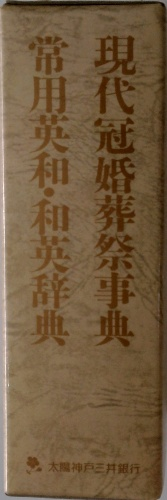 現代冠婚葬祭事典
常用英和・和英辞典
太陽神戸三井銀行